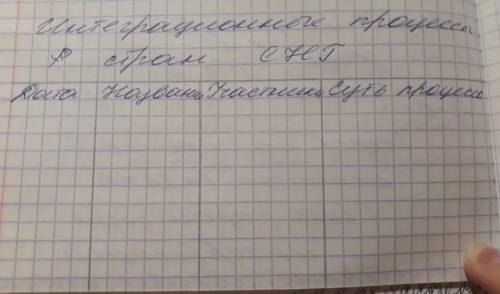 Интеграционные процессы
стран СНГ
Дата Названи Участники Суть процесса